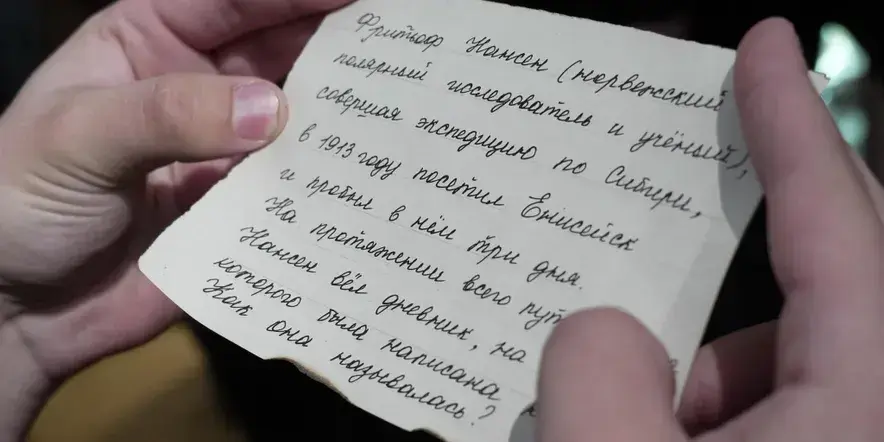 Фритьоф Нансен (норвежский
полярный исследователь и учёный),
совершая экспедицию по Сибири,
в 1913 году посетил Енисейск
и пробыл в нём три дня.
На протяжении всего
Нансен вёл дневник, на
которого была написана
Как она называлась?